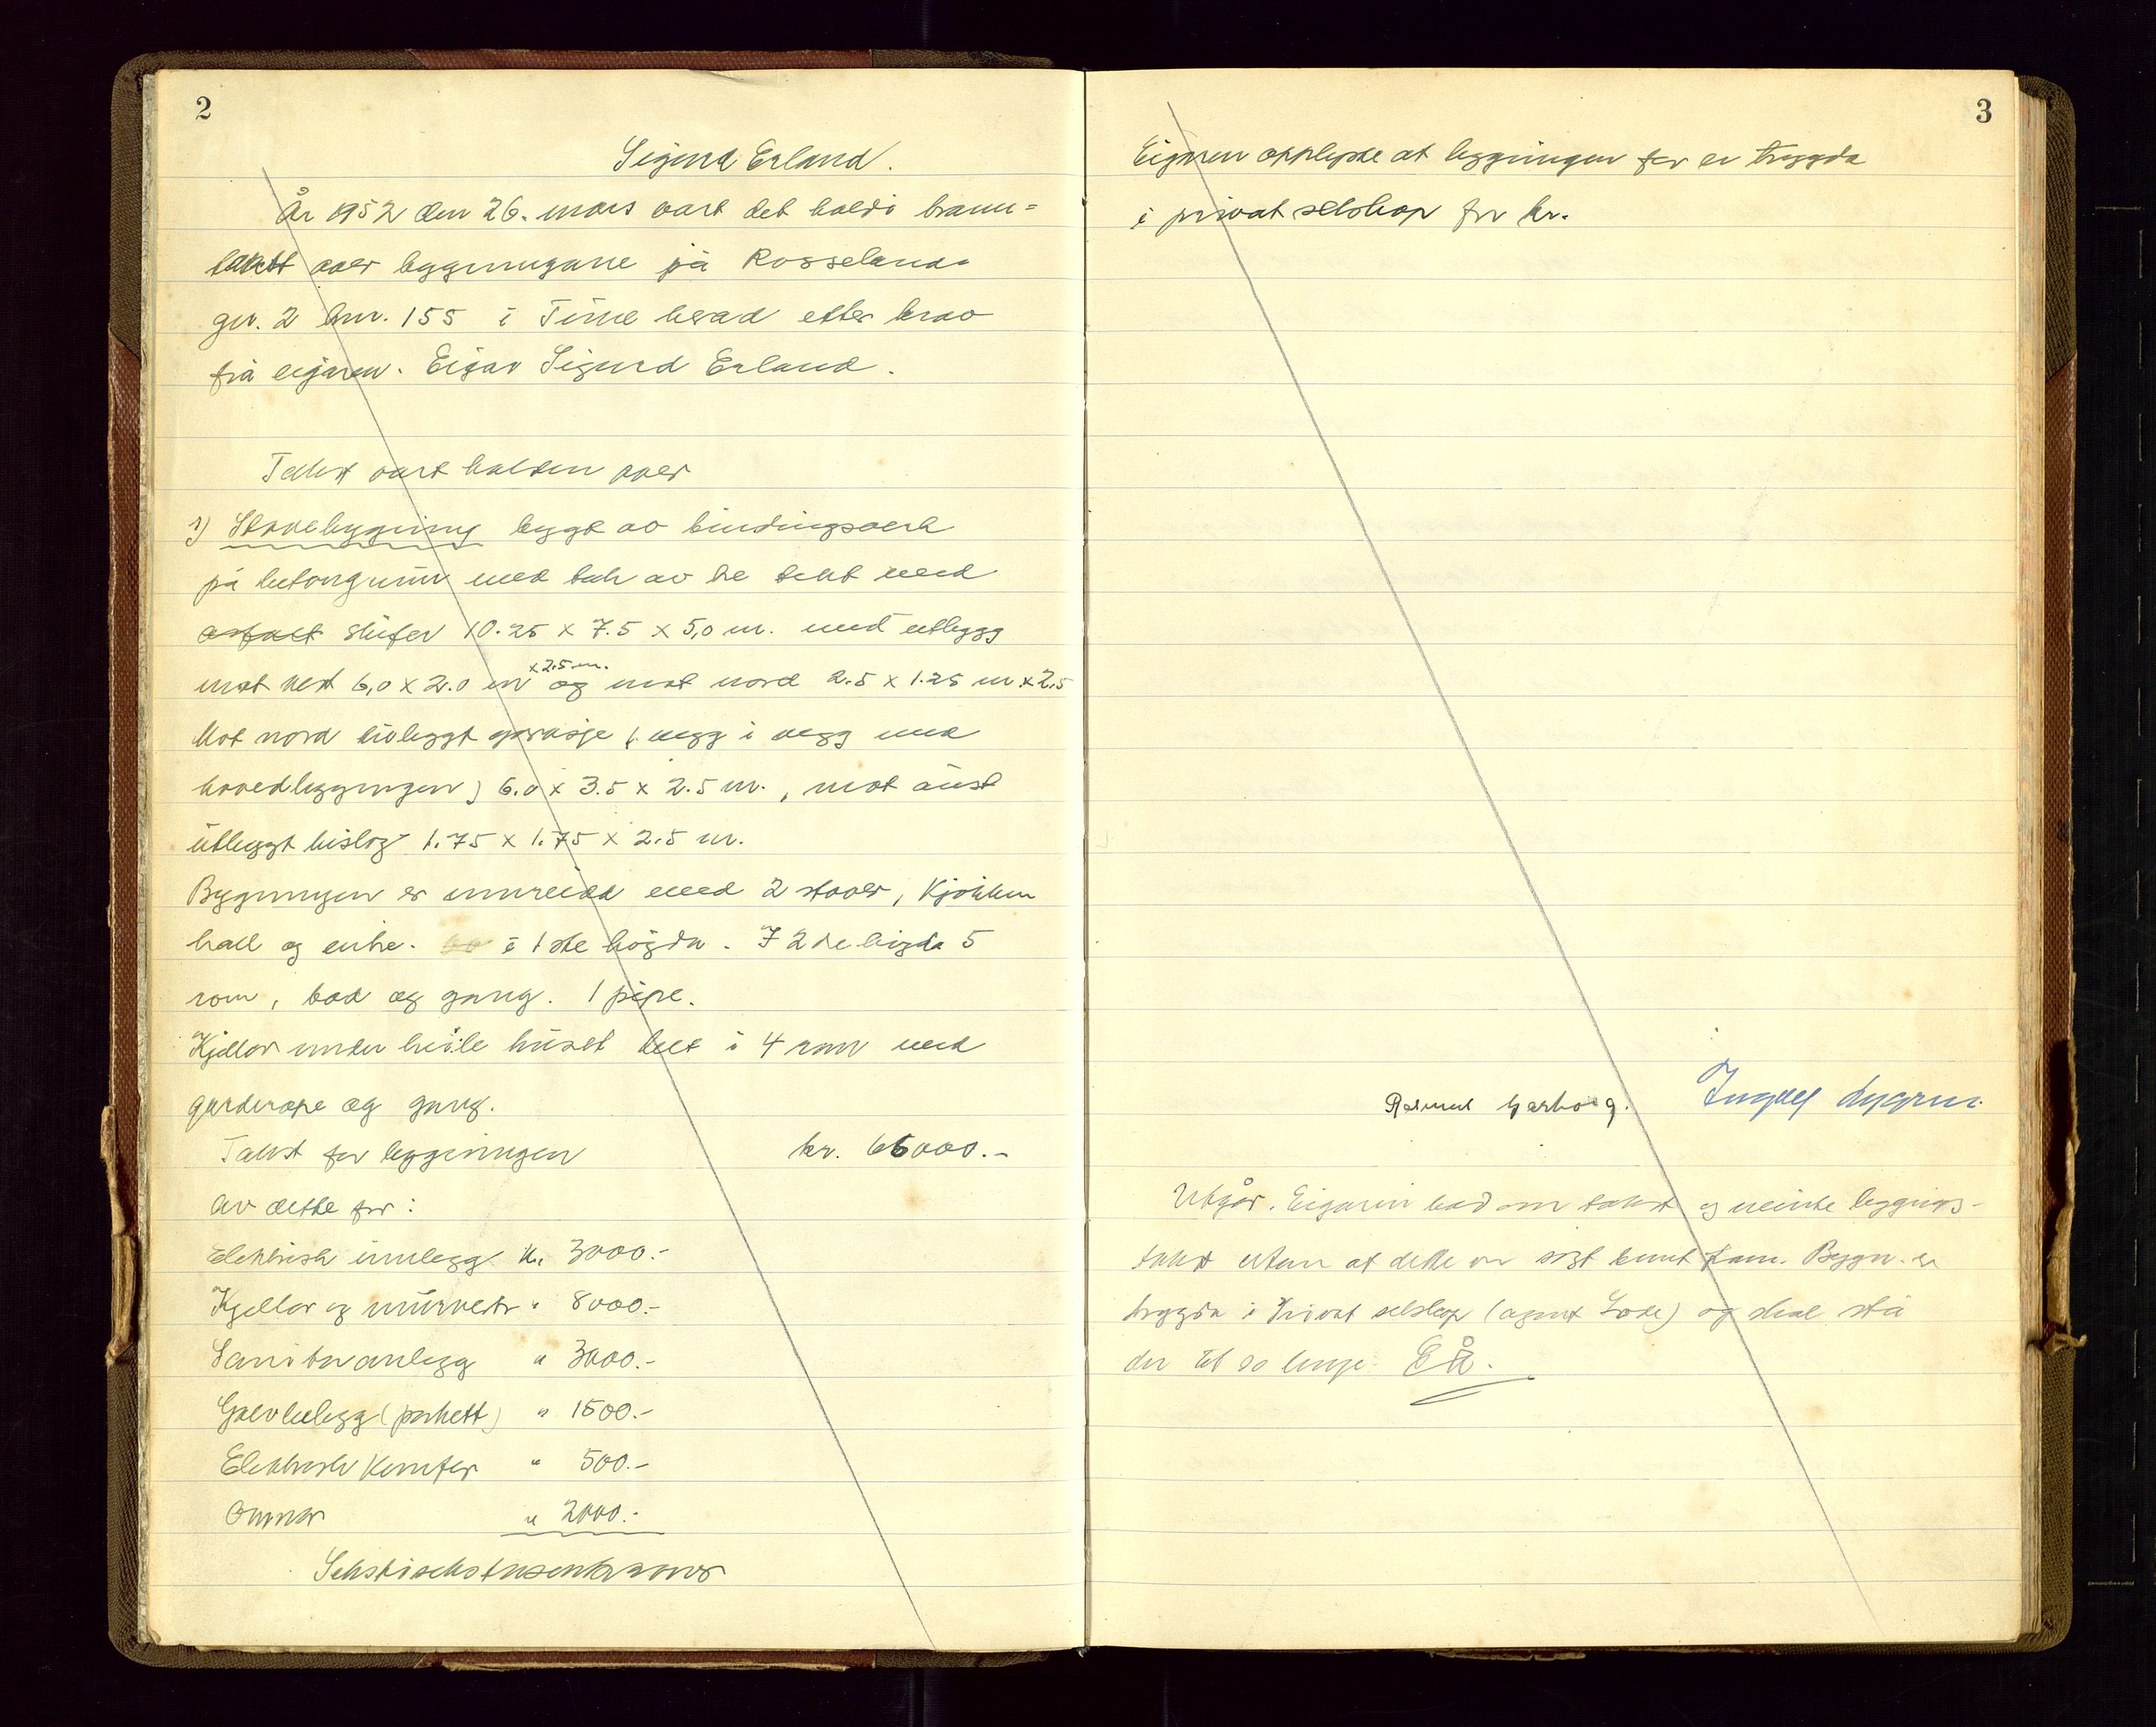 2
Sigurd Erland.
År 1952 den 26. mars vart det haldi brann=
takst over bygningane på Rosseland.
gnr. 2 bnr. 155 i Time herad etter krav
frå eigaren. Eigar Sigurd Erland.
Takst vart halden over
1) Stovebygning bygt av bindingsverk
på betongmur med tak av tre tekt med
asfalt skifer 10.25 x 7.5 x 5,0 m. med utbygg
mot vest 6,0 x 2.0 m x 2.5 m. og mot nord 2.5 x 1.25 m x 2.5
Mot nord tilbygt garasje (vegg i vegg med
hovedbygningen) 6.0 x 3.5 x 2.5 m., mot aust
utbygt bislag 1.75 x 1.75 x 2.5 m.
Bygningen er innreidd med 2 stover, kjøkken
hall og entre. i 1ste høgda. I 2dre høgda 5
rom, bad og gang. 1 pipe.
Kjellar under heile huset delt i 4 rom med
garderope og gang.
Takst for bygningen kr. 66000.-
Av dette for:
Elektrisk innlegg kr. 3000.-
Kjellar og murverk " 8000.-
Sanitæranlegg " 3000.-
Golvbelegg (parkett) " 1500.-
Elektrisk komfyr " 500.-
Omnar " 2000.-
Sekstisekstusenkroner
3
Eigaren opplyste at bygningen før er trygda
i privat selskap for kr.
Rasmus Garborg. Ingolf Lygren.
Utgår. Eigaren bad om takst og meinte bygnings-
takst utan at dette var sagt beint fram. Bygn. er
trygda i privat selskap (agent Lode) og skal stå
der til so lenge. EÅ.